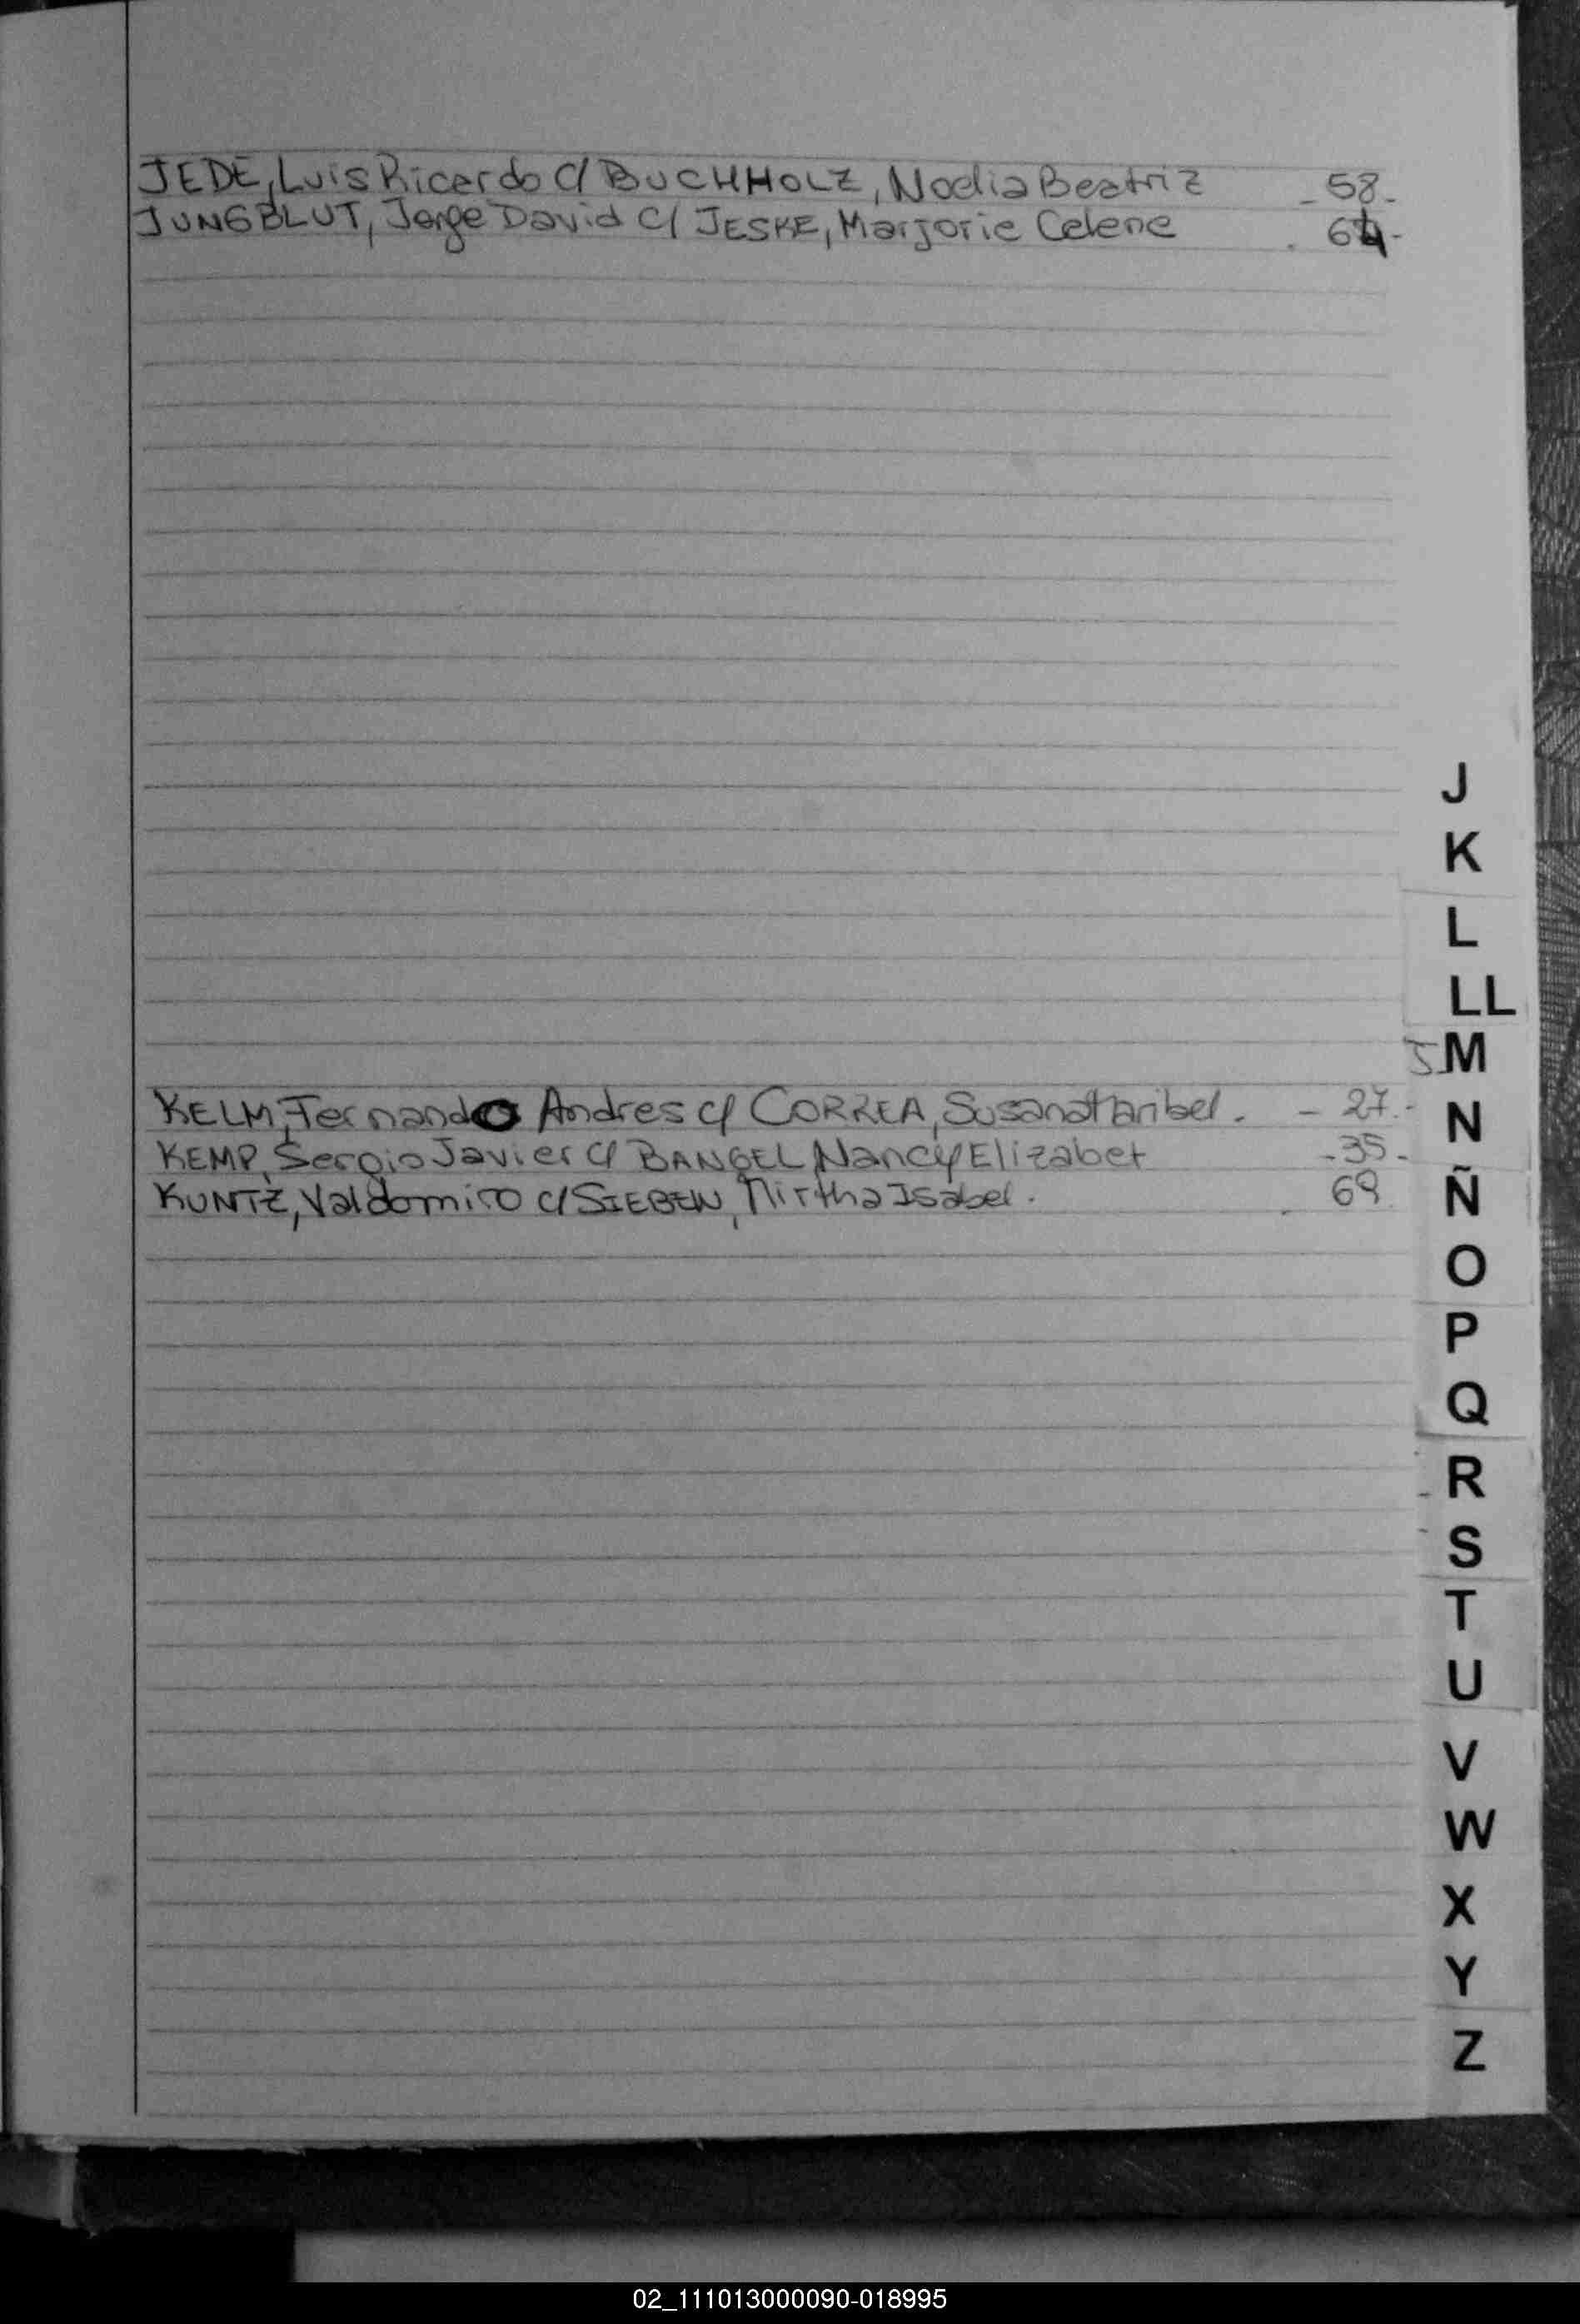 JEDE, Luis Ricardo C/ BUCHHOLZ, Noelia Beatriz - 58-
JUNGBLUT, Jorge David C/ JESKE, Marjorie Celene - 64-
J
K
L
LL
M
KELM, Fernando Andres C/ CORREA, Susana Maribel. - 27.-
N
KEMP, Sergio Javier C/ BANGEL, Nancy Elizabet - 35 -
KUNTZ, Valdomiro C/ SIEBEN, Mirtha Isabel. 69
Ñ
O
P
Q
R
S
T
U
V
W
X
Y
Z
02_111013000090-018995